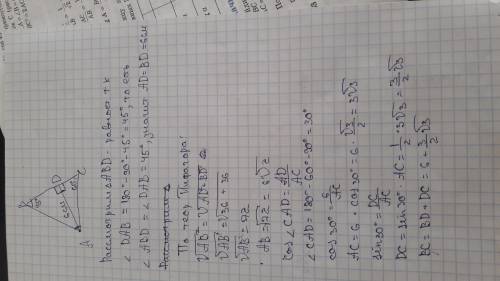 B
45°
D
6см
60°
A
C
Рассмотрим △ABD - равноб. т.к
< DAB = 180° - 90° - 45° = 45°, то есть
< ABD = < DAB = 45°, значит AD = BD = 6см
По теор Пифагора:
√AB² = √36 + 36
√AB² = 72
AB = √72 = 6√2
cos < CAD = AD/AC
< CAD = 180° - 60° - 90° = 30°
cos 30° = 6/AC
AC = 6 · cos 30° = 6 · √3/2 = 3√3
sin 30° = DC/AC
DC = sin 30° · AC = 1/2 · 3√3 = 3/2 √3
BC = BD + DC = 6 + 3/2 √3